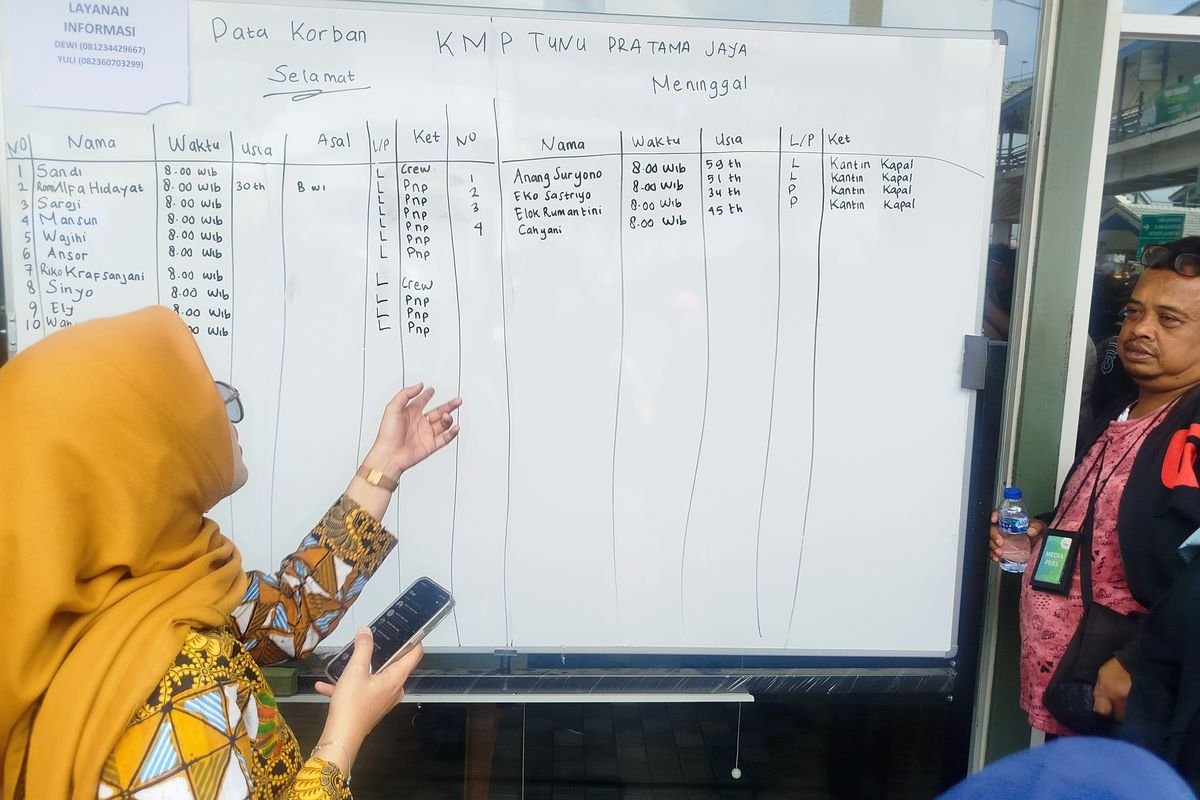 LAYANAN
INFORMASI
DEWI (081234429667)
YULI (082360703299)
Data Korban KMP TUNU PRATAMA JAYA
Selamat
NO Nama Waktu Usia Asal L/P Ket
1 Sandi 8.00 WIB L Crew
2 Romi Alfa Hidayat 8.00 WIB 30 th BWI L Pnp
3 Saroji 8.00 WIB L Pnp
4 Mansun 8.00 WIB L Pnp
5 Wajihi 8.00 WIB L Pnp
6 Ansor 8.00 WIB L Pnp
7 Riko Krafsanjani 8.00 WIB L Crew
8 Sinyo 8.00 WIB L Pnp
9 Ely 8.00 WIB L Pnp
10 00 WIB L Pnp
Meninggal
NO Nama Waktu Usia L/P Ket
1 Anang Suryono 8.00 WIB 59 th L Kantin Kapal
2 Eko Sastriyo 8.00 WIB 51 th L Kantin Kapal
3 Elok Rumantini 8.00 WIB 34 th P Kantin Kapal
4 Cahyani 8.00 WIB 45 th P Kantin Kapal
MEDIA
PERS